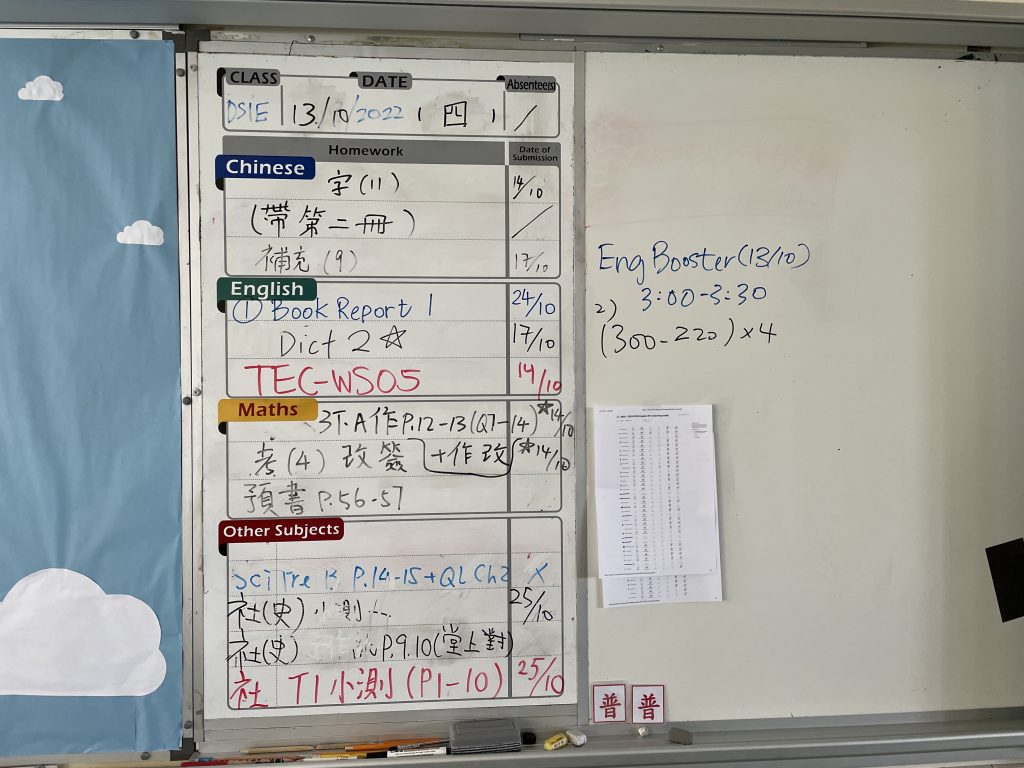 CLASS DATE Absentee(s)
DSIE 13/10/2022 ( 四 ) /
Homework Date of Submission
Chinese
字(11) 14/10
(帶第二冊) /
補充(9) 17/10
English
① Book Report 1 24/10
Dict 2 ☆ 17/10
TEC-WS05 14/10
Maths
3T.A作P.12-13(Q7-14) ☆14/10
考(4) 改簽 +作改 ☆14/10
預書 P.56-57
Other Subjects
Sci P.14-15+QL Ch2 X
社(史)小測 25/10
社(史) P.9.10(堂上對)
社 T1小測(P1-10) 25/10
Eng Booster(13/10)
3:00-3:30
2)
(300-220)×4
普 普